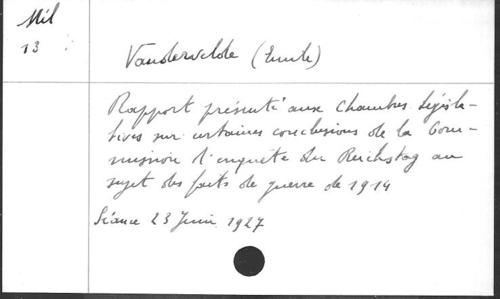 Mil
13
Vandervelde (Emile)
Rapport présenté aux Chambres législa-
tives sur certaines conclusions de la Com-
mission d'enquête du Reichstag au
sujet des faits de guerre de 1914
Séance 23 Juin 1927